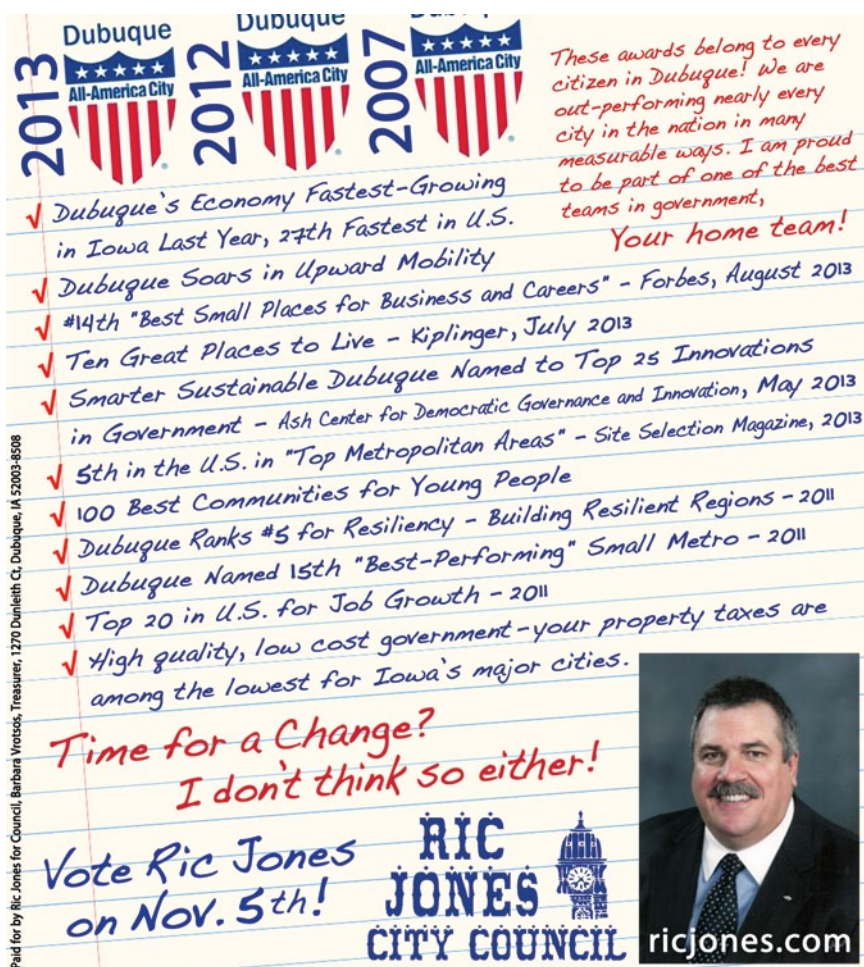 2013
Dubuque
All-America City
2012
Dubuque
All-America City
2007
Dubuque
All-America City
These awards belong to every
citizen in Dubuque! We are
out-performing nearly every
city in the nation in many
measurable ways. I am proud
to be part of one of the best
teams in government,
Your home team!
√ Dubuque's Economy Fastest-Growing
in Iowa Last Year, 27th Fastest in U.S.
√ Dubuque Soars in Upward Mobility
√ #14th "Best Small Places for Business and Careers" - Forbes, August 2013
√ Ten Great Places to Live - Kiplinger, July 2013
√ Smarter Sustainable Dubuque Named to Top 25 Innovations
in Government - Ash Center for Democratic Governance and Innovation, May 2013
√ 5th in the U.S. in "Top Metropolitan Areas" - Site Selection Magazine, 2013
√ 100 Best Communities for Young People
√ Dubuque Ranks #5 for Resiliency - Building Resilient Regions - 2011
√ Dubuque Named 15th "Best-Performing" Small Metro - 2011
√ Top 20 in U.S. for Job Growth - 2011
√ High quality, low cost government-your property taxes are
among the lowest for Iowa's major cities.
Time for a Change?
I don't think so either!
Vote Ric Jones
on Nov. 5th!
RIC
JONES
CITY COUNCIL
ricjones.com
Paid for by Ric Jones for Council, Barbara Vrotsos, Treasurer, 1270 Dunleith Ct, Dubuque, IA 52003-8508